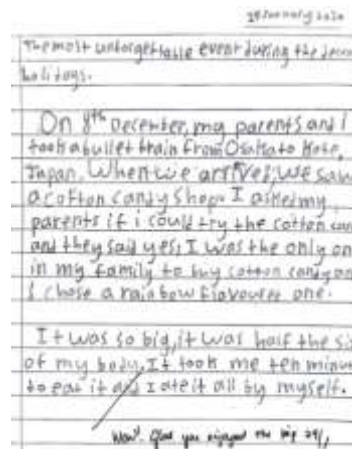 28 January 2020
The most unforgettable event during the dece
holidays.
On 8th December, my parents and I
took a bullet train from Osaka to Kobe,
Japan. When we arrives, we saw
a cotton candy shop. I asked my
parents if i could try the cotton can
and they said yes, I was the only on
in my family to buy cotton candy an
I chose a rainbow flavoured one.
It was so big, it was half the si
of my body. It took me ten minut
to eat it and I ate it all by myself.
Wow! Glad you enjoyed the trip 29/1